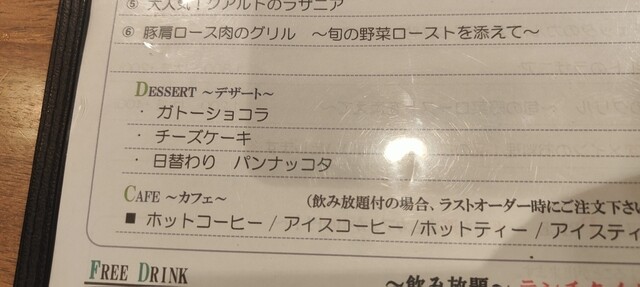 ⑤ 大人気！クアルトのラザニア
⑥ 豚肩ロース肉のグリル ～旬の野菜ローストを添えて～
DESSERT ～デザート～
・ ガトーショコラ
・ チーズケーキ
・ 日替わり パンナッコタ
CAFE ～カフェ～ (飲み放題付の場合、ラストオーダー時にご注文下さい
■ ホットコーヒー / アイスコーヒー /ホットティー / アイスティ
FREE DRINK ～飲み放題～